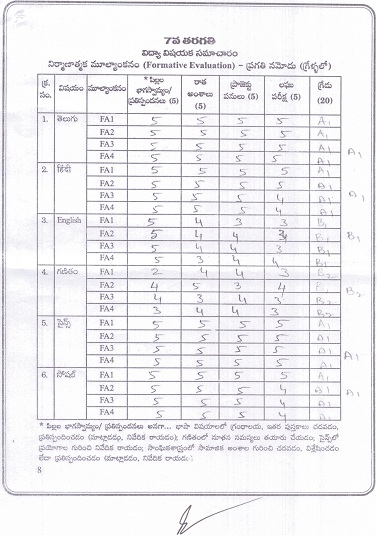 7వ తరగతి
విద్యా విషయక సమాచారం
నిర్మాణాత్మక మూల్యాంకనం (Formative Evaluation) – ప్రగతి నమోదు (గ్రేళ్ళలో)
క్ర. సం. విషయం మూల్యాంకనం * పిల్లల భాగస్వామ్యం/ ప్రతిస్పందనలు (5) రాత అంశాలు (5) ప్రాజెక్టు పనులు (5) లఘు పరీక్ష (5) గ్రేడు (20)
1. తెలుగు FA1 5 5 5 5 A1
FA2 5 5 5 5 A1
FA3 5 5 5 5 A1
FA4 5 5 5 5 A1 A1
2. हिंदी FA1 5 5 5 5 A1
FA2 5 5 5 5 A1
FA3 5 5 5 4 A1 A1
FA4 5 5 5 4 A1
3. English FA1 5 4 3 3 B1
FA2 5 4 4 3 B1 B1
FA3 5 4 4 3 B1
FA4 5 3 4 4 B1
4. గణితం FA1 2 4 4 3 B2
FA2 4 5 3 4 B2
FA3 4 3 4 3 B2
FA4 3 4 4 3 B2
5. సైన్స్ FA1 5 5 5 5 A1
FA2 5 5 5 5 A1
FA3 5 5 5 5 A1
FA4 5 5 5 5 A1 A1
6. సోషల్ FA1 5 5 5 5 A1
FA2 5 5 5 4 A1 A1
FA3 5 5 5 4 A1
FA4 5 5 5 4 A1
* పిల్లల భాగస్వామ్యం/ ప్రతిస్పందనలు అనగా... భాషా విషయాలలో గ్రంథాలయ, ఇతర పుస్తకాలు చదవడం,
ప్రతిస్పందించడం (మాట్లాడడం, నివేదిక రాయడం); గణితంలో నూతన సమస్యలు తయారు చేయడం; సైన్స్‌లో
ప్రయోగాల గురించి నివేదిక రాయడం; సాంఘికశాస్త్రంలో సామాజిక అంశాల గురించి చదవడం, విశ్లేషించడం
లేదా ప్రతిస్పందించడం (మాట్లాడడం, నివేదిక రాయడం)
8